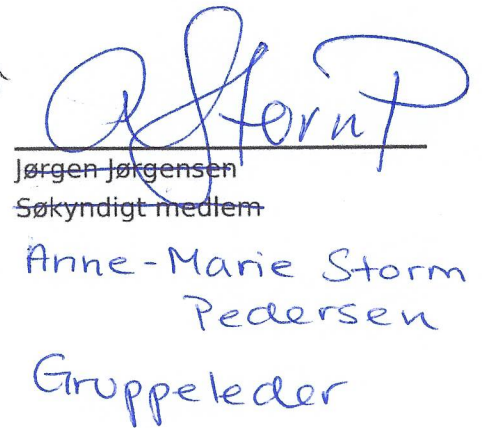 A Storm P
Jørgen Jørgensen
Søkyndigt medlem
Anne-Marie Storm
Pedersen
Gruppeleder